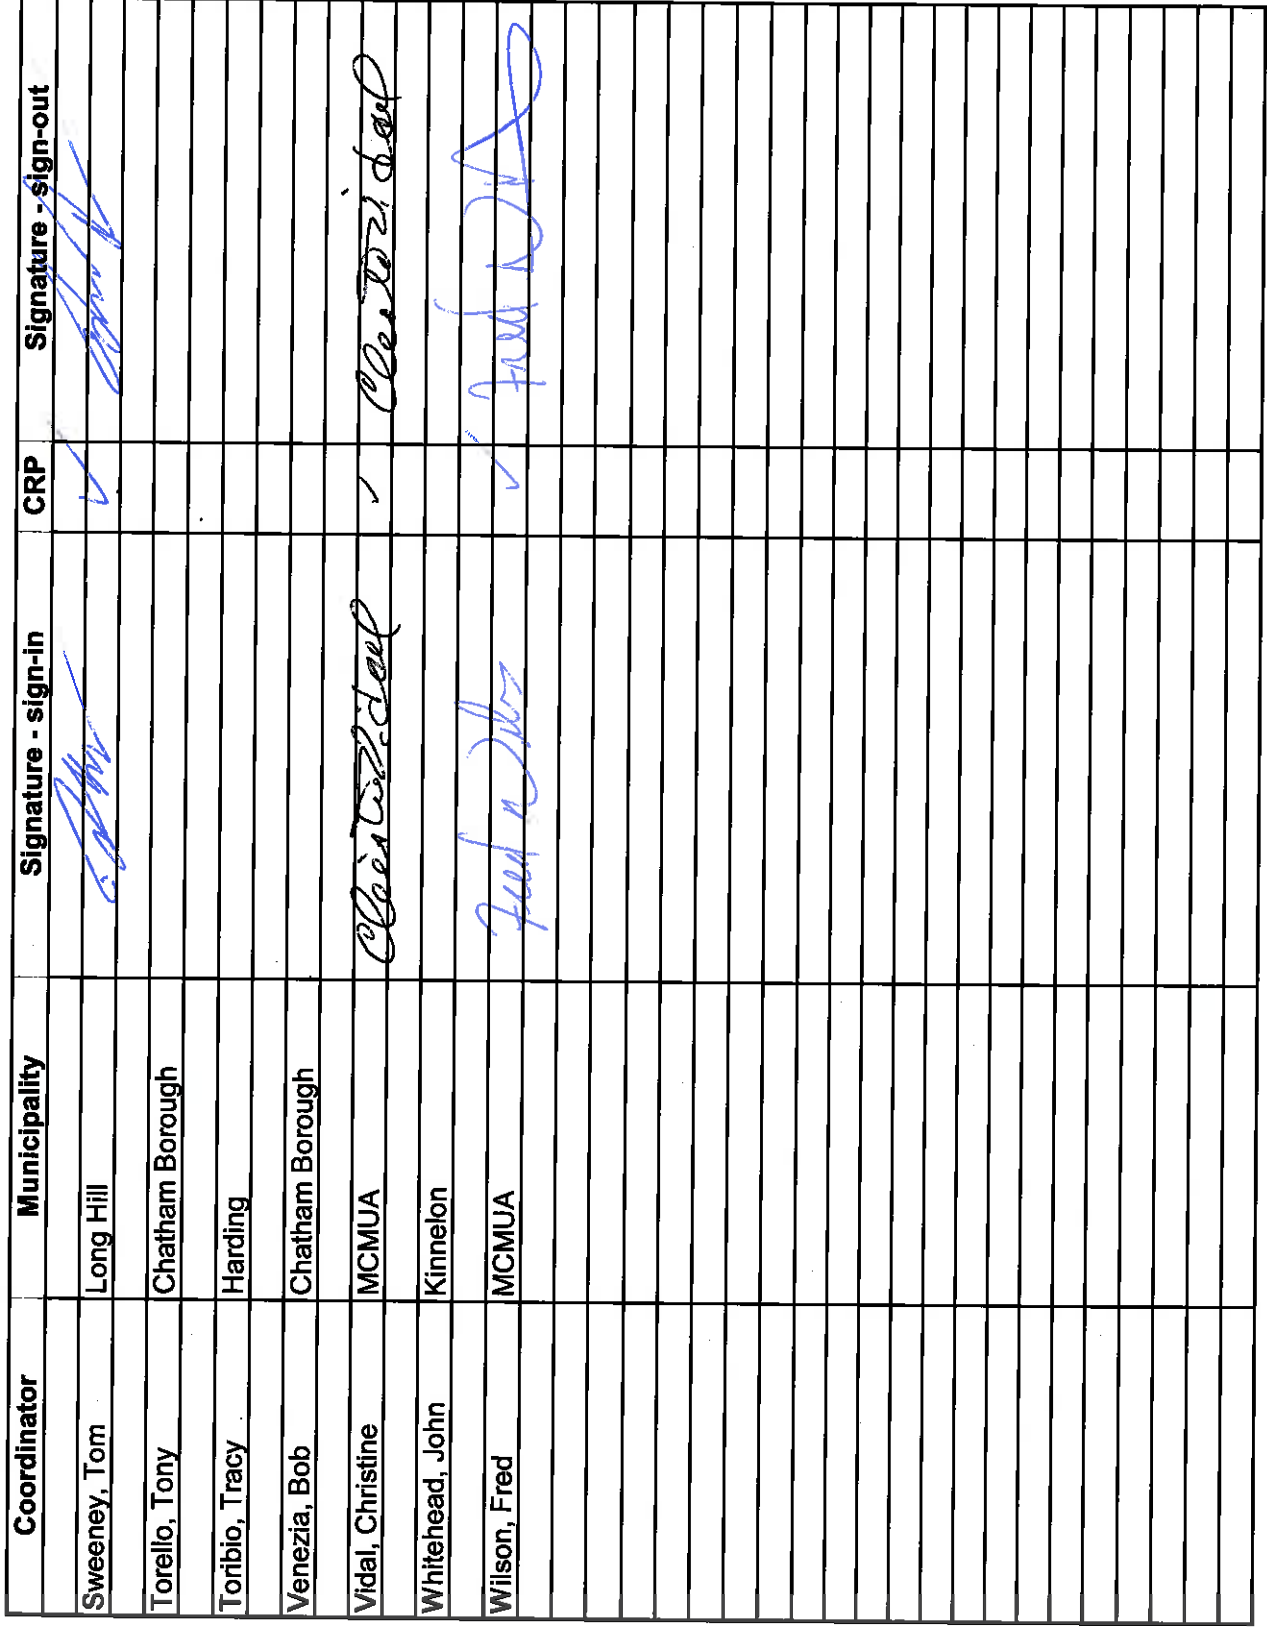 Coordinator Municipality Signature - sign-in CRP Signature - sign-out
Sweeney, Tom Long Hill ✓
Torello, Tony Chatham Borough
Toribio, Tracy Harding
Venezia, Bob Chatham Borough
Vidal, Christine MCMUA Christine Vidal ✓ Christine Vidal
Whitehead, John Kinnelon
Wilson, Fred MCMUA Fred Wilson ✓ Fred